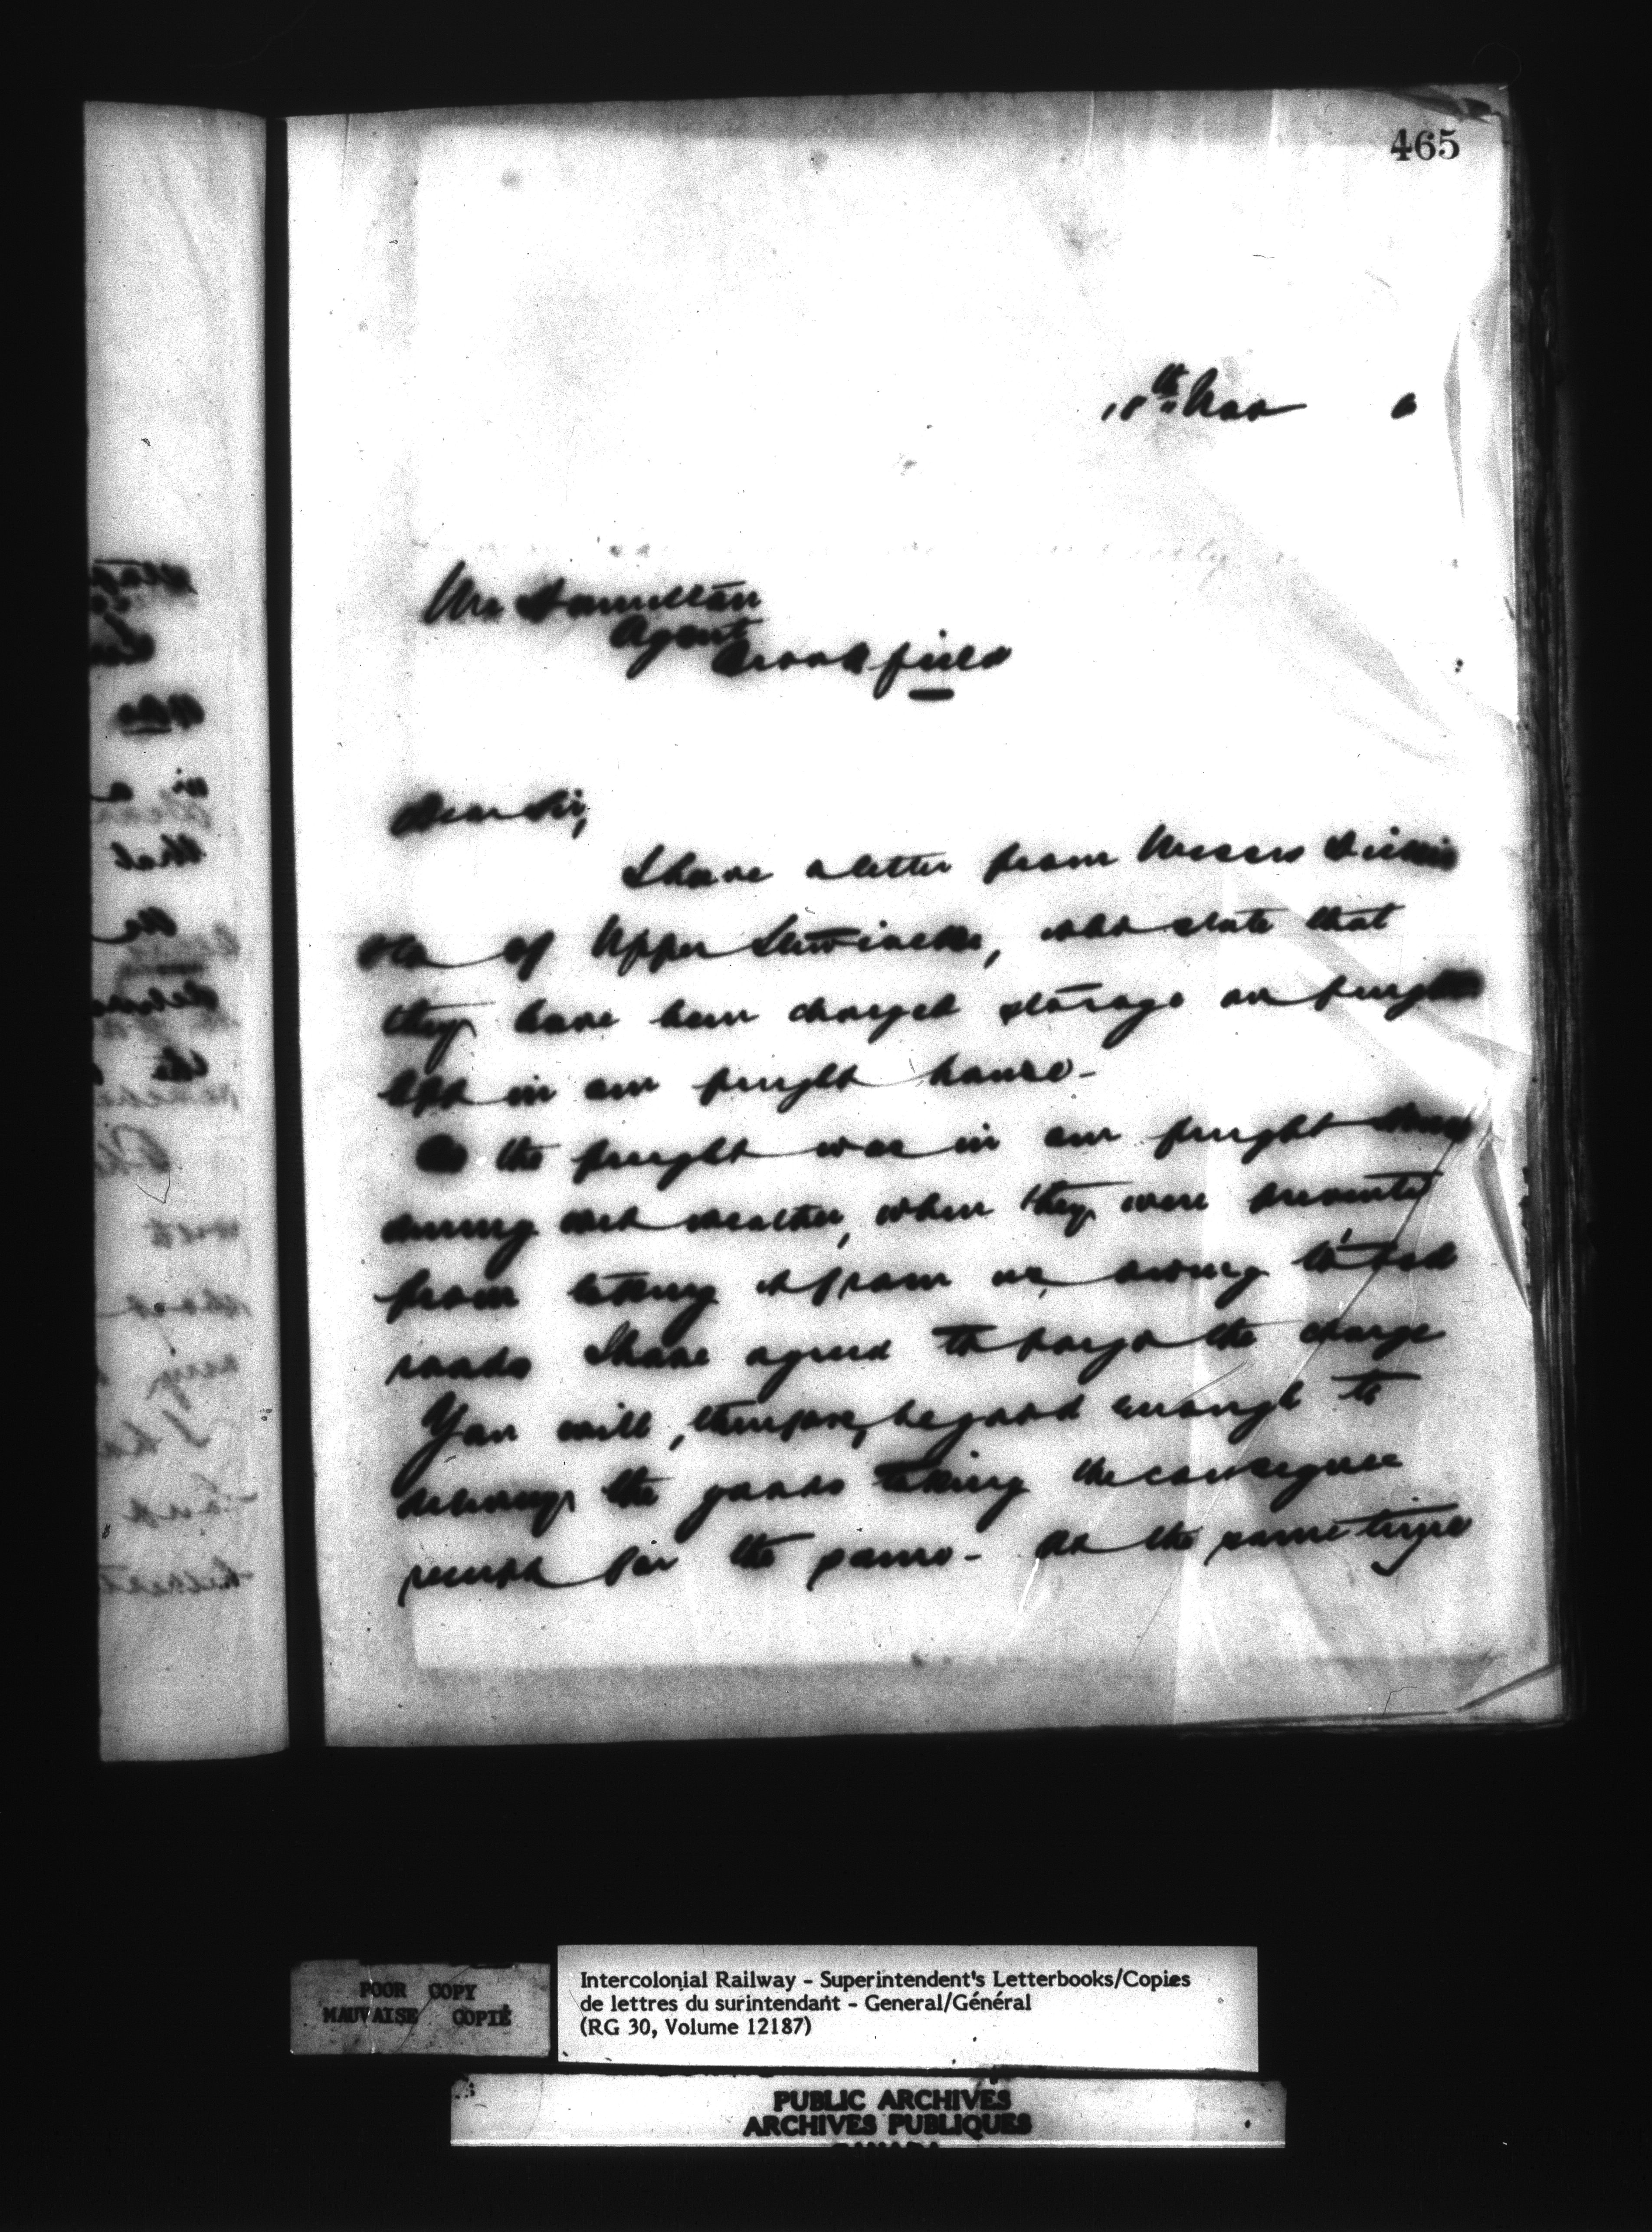 465
th Nov
Mr Hamilton
Agent
Brookfield
Dear Sir,
I have a letter from Messrs
of Upper Stewiacke, who state that
they have been charged storage on freight
left in our freight house -
the freight was in our freight
during wet weather, when they were prevented
from taking it from us, owing to bad
roads I have agreed to forego the charge
You will, therefore, be good enough to
deliver the goods taking the consignee
receipt for the same - At the same time
POOR COPY
MAUVAISE COPIE
Intercolonial Railway - Superintendent's Letterbooks/Copies
de lettres du surintendant - General/Général
(RG 30, Volume 12187)
PUBLIC ARCHIVES
ARCHIVES PUBLIQUES
CANADA